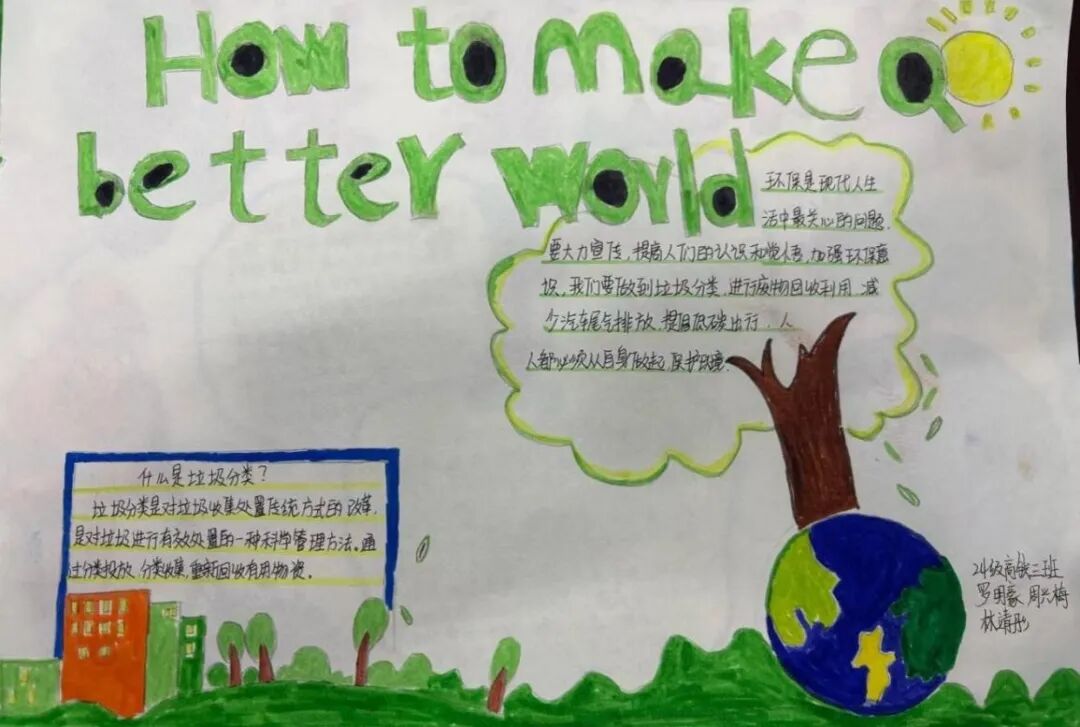 How to make a
better world
环保是现代人生
活中最关心的问题.
要大力宣传,提高人们的认识和觉悟,加强环保意
识,我们要做到垃圾分类,进行废物回收利用,减
少汽车尾气排放,提倡低碳出行,人
人都必须从自身做起,保护环境.
什么是垃圾分类?
垃圾分类是对垃圾收集处置传统方式的改革,
是对垃圾进行有效处置的一种科学管理方法。通
过分类投放,分类收集,重新回收有用物资。
24级高铁二班
罗明豪 周兴梅
林靖彤